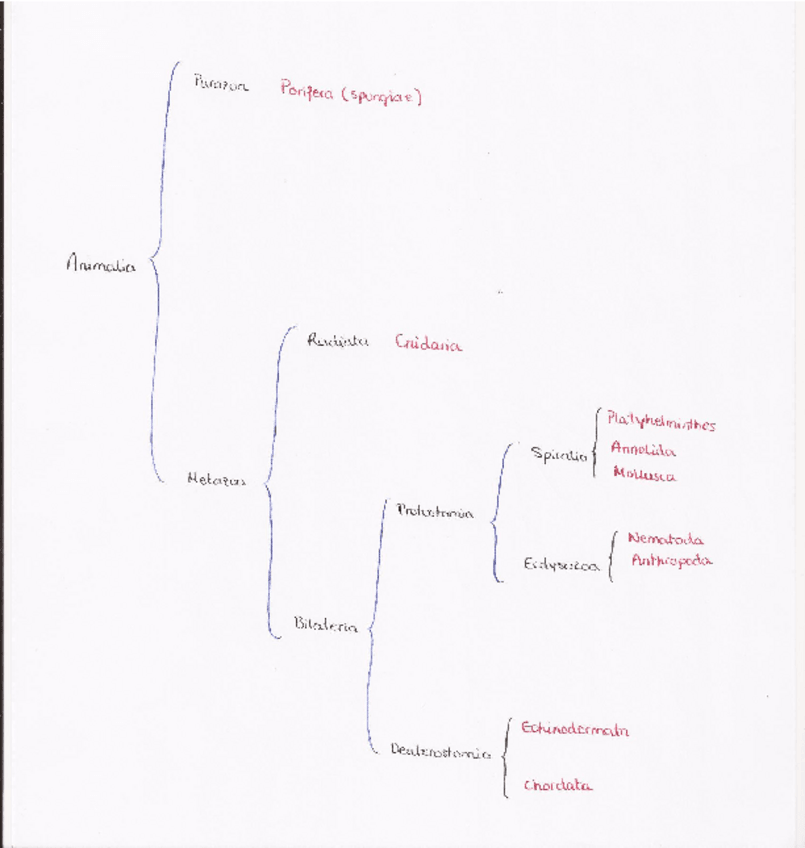 Parazoa Porifera (spongiae)
Animalia
Radiata Cnidaria
Platyhelminthes
Spiralia Annelida
Mollusca
Metazoa
Protostomia
Nematoda
Ecdysozoa Arthropoda
Bilateria
Echinodermata
Deuterostomia
Chordata